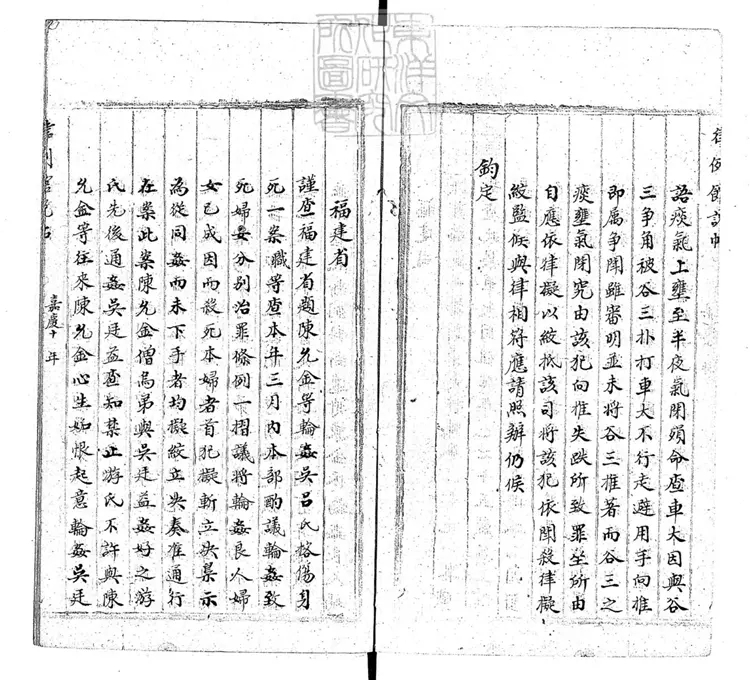 語痰氣上壅至半夜氣閉殞命查車大因與谷
三爭角被谷三扑打車大不行走避用手向推
即属爭鬬雖審明並未將谷三推著而谷三之
痰壅氣閉究由該犯向推失跌所致罪坐所由
自應依律擬以絞抵該司將該犯依鬬殺律擬
絞監候與律相符應請照辦仍候
鈞定
福建省
謹查福建省題陳允金等輪姦吳呂氏搭傷身
死一案職等查本年三月內本部酌議輪姦致
死婦女分别治罪條例一摺議將輪姦良人婦
女已成因而殺死本婦者首犯擬斬立決梟示
為從同姦而未下手者均擬絞立決奏准通行
在案此案陳允金僧為弟與吳廷益姦好之游
氏先後通姦吳廷益查知禁止游氏不許與陳
允金等往來陳允金心生妬恨起意輪姦吳廷
嘉慶十年